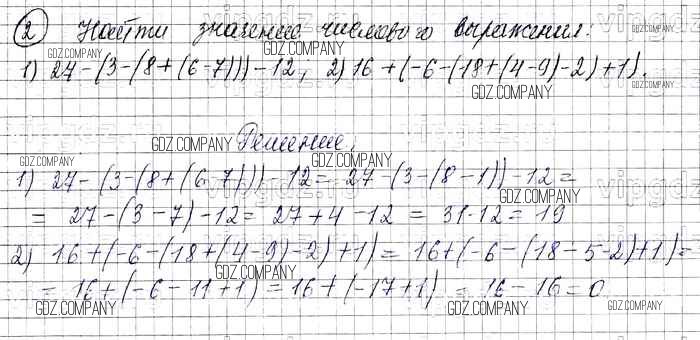 2 Найти значение числового выражения:
1) 27-(3-(8+(6-7)))-12, 2) 16+(-6-(18+(4-9)-2)+1).
Решение.
1) 27-(3-(8+(6-7)))-12= 27-(3-(8-1))-12=
= 27-(3-7)-12= 27+4-12 = 31-12= 19
2) 16+(-6-(18+(4-9)-2)+1)= 16+(-6-(18-5-2)+1)=
= 16+(-6-11+1)=16+(-17+1) = 16-16=0
GDZ.COMPANY
GDZ.COMPANY
GDZ.COMPANY
GDZ.COMPANY
GDZ.COMPANY
GDZ.COMPANY
GDZ.COMPANY
GDZ.COMPANY
GDZ.COMPANY
GDZ.COMPANY
GDZ.COMPANY
GDZ.COMPANY
GDZ.COMPANY
GDZ.COMPANY